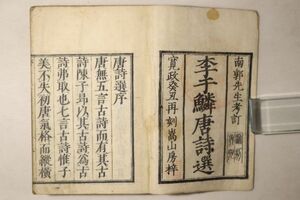 南郭先生考訂
李于鱗唐詩選
寛政癸丑再刻嵩山房梓
唐詩選序
唐無五言古詩而有其古
詩陳子昻以其古詩爲古
詩弗取也七言古詩惟子
美不失初唐氣格而縱橫